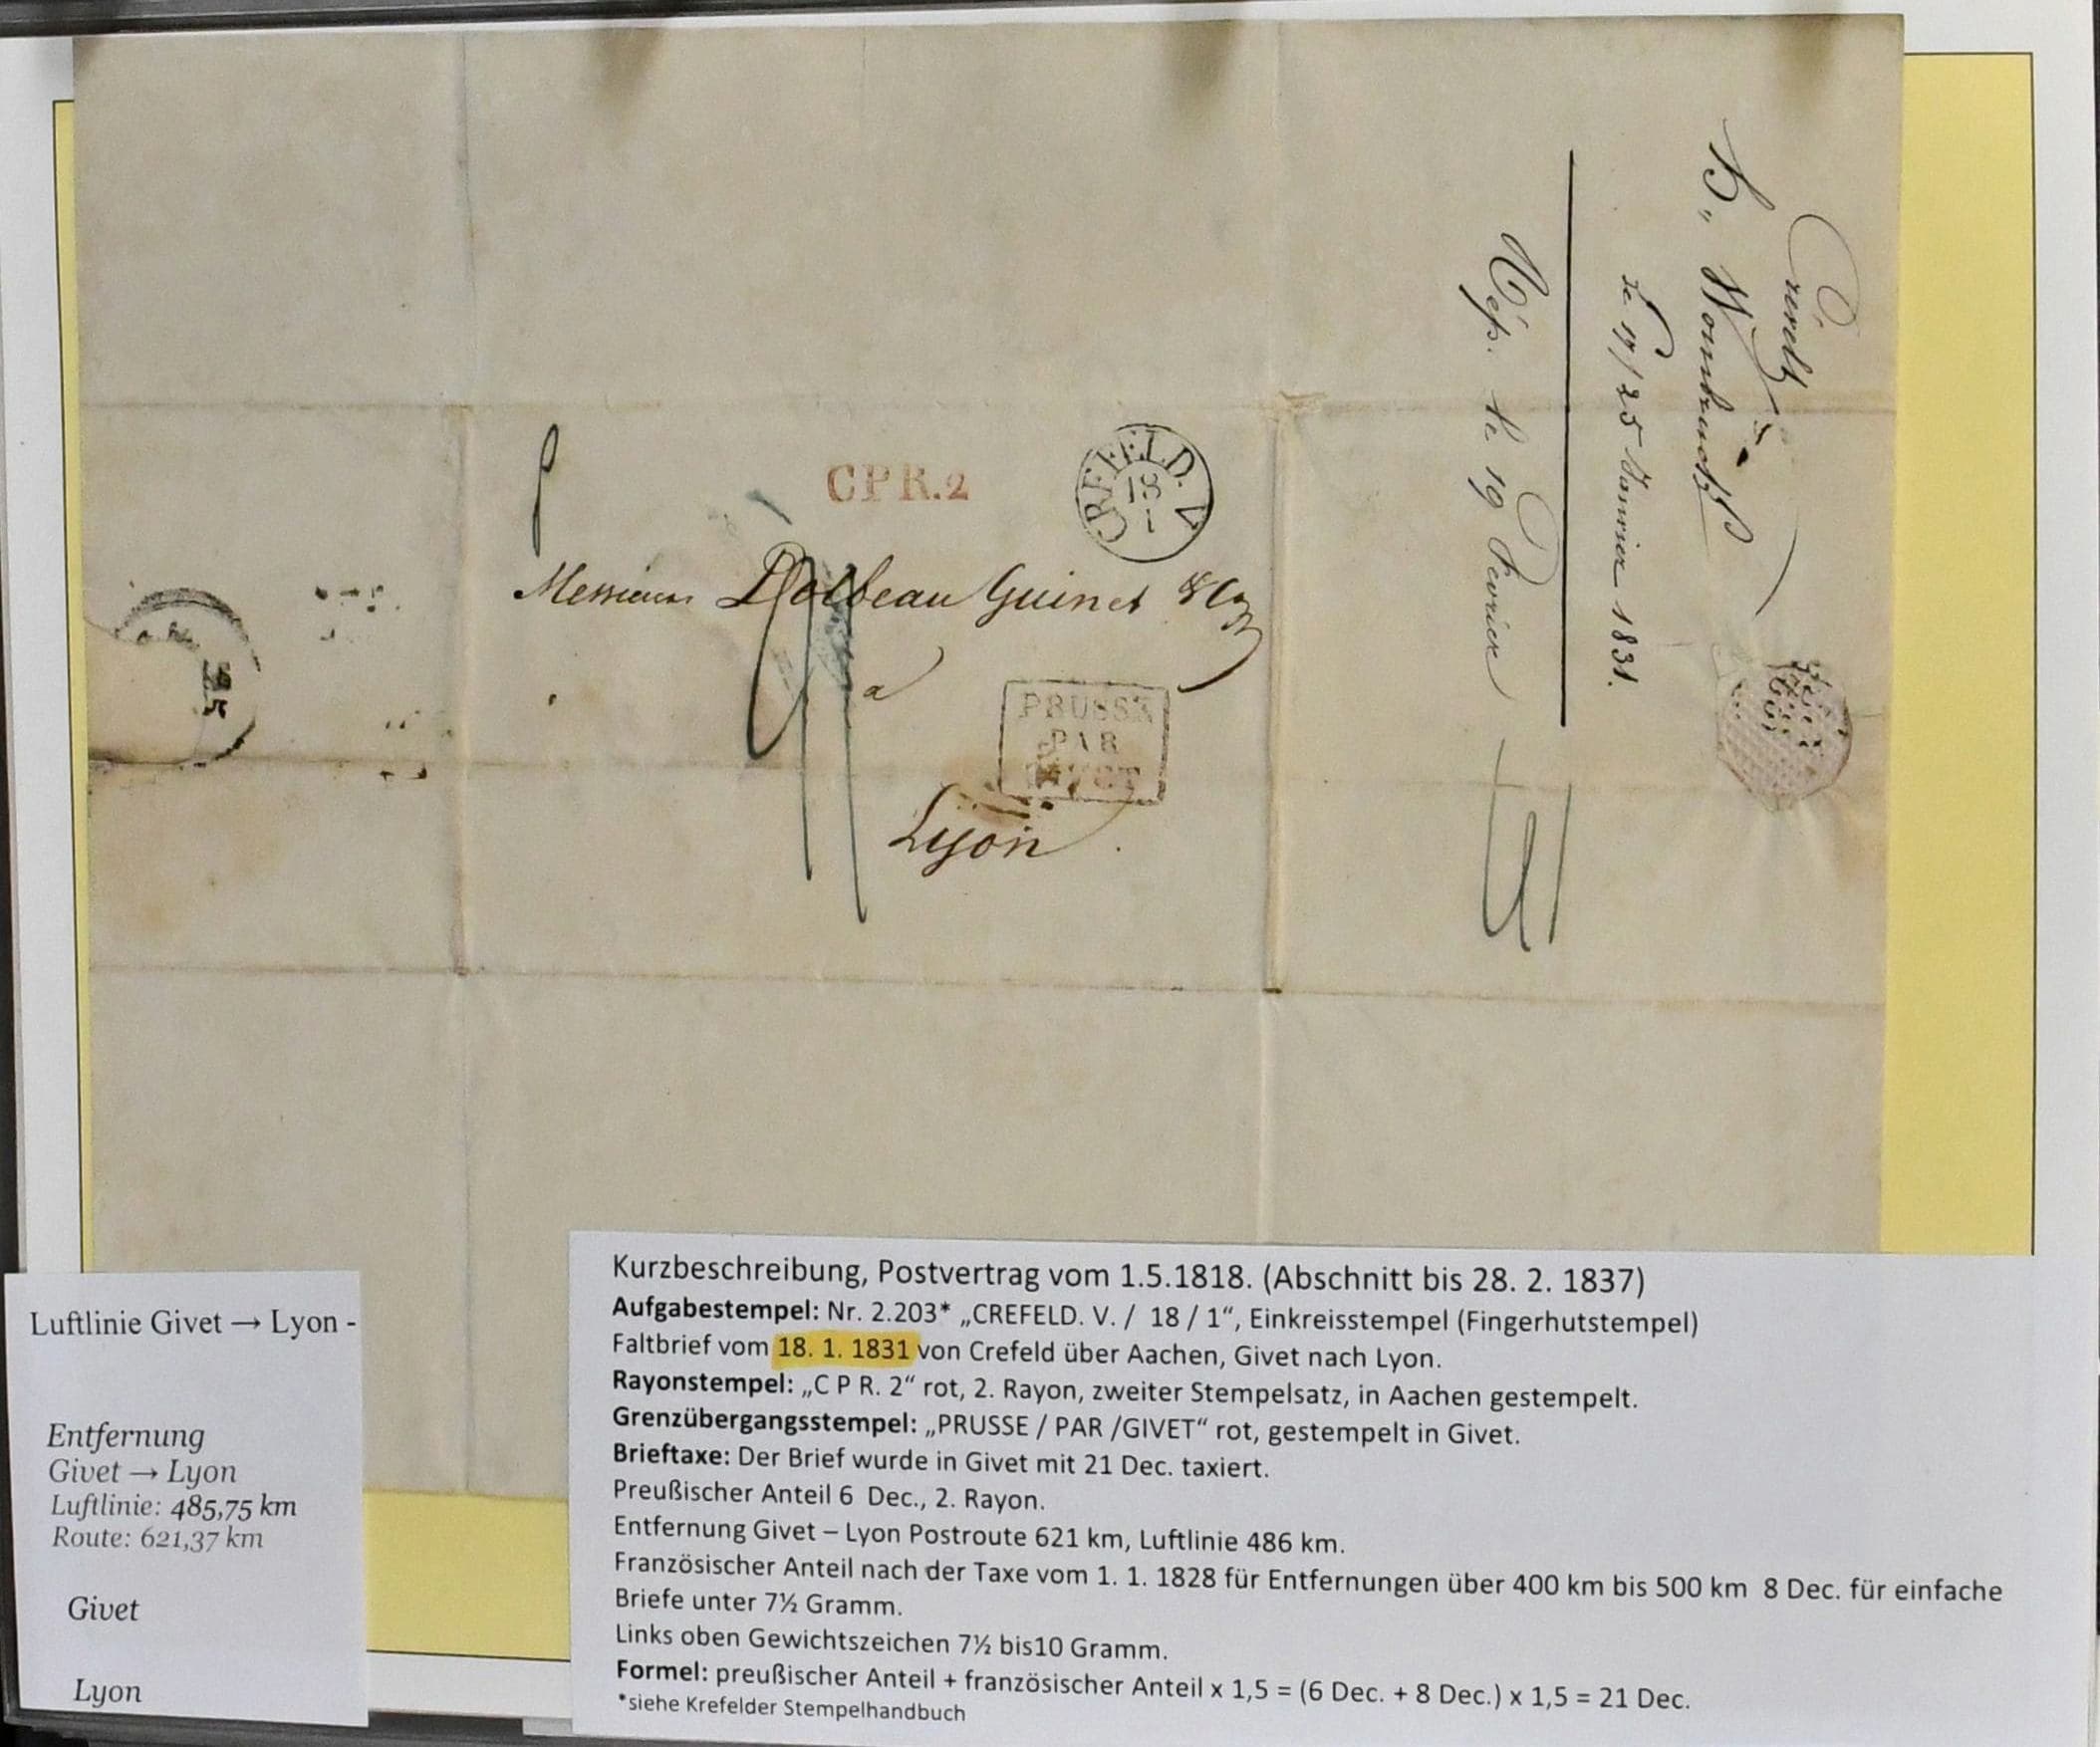 CPR.2
CREFELD. V
18
1
Messieurs Dolbeau Guinet & Co
a
PRUSSE
PAR
GIVET
Lyon
Crefeld
le 17/25 Janvier 1831.
Rép. le 19 Fevrier
Luftlinie Givet → Lyon -
Entfernung
Givet → Lyon
Luftlinie: 485,75 km
Route: 621,37 km
Givet
Lyon
Kurzbeschreibung, Postvertrag vom 1.5.1818. (Abschnitt bis 28. 2. 1837)
Aufgabestempel: Nr. 2.203* „CREFELD. V. / 18 / 1“, Einkreisstempel (Fingerhutstempel)
Faltbrief vom 18. 1. 1831 von Crefeld über Aachen, Givet nach Lyon.
Rayonstempel: „C P R. 2“ rot, 2. Rayon, zweiter Stempelsatz, in Aachen gestempelt.
Grenzübergangsstempel: „PRUSSE / PAR /GIVET“ rot, gestempelt in Givet.
Brieftaxe: Der Brief wurde in Givet mit 21 Dec. taxiert.
Preußischer Anteil 6 Dec., 2. Rayon.
Entfernung Givet – Lyon Postroute 621 km, Luftlinie 486 km.
Französischer Anteil nach der Taxe vom 1. 1. 1828 für Entfernungen über 400 km bis 500 km 8 Dec. für einfache
Briefe unter 7½ Gramm.
Links oben Gewichtszeichen 7½ bis10 Gramm.
Formel: preußischer Anteil + französischer Anteil x 1,5 = (6 Dec. + 8 Dec.) x 1,5 = 21 Dec.
*siehe Krefelder Stempelhandbuch